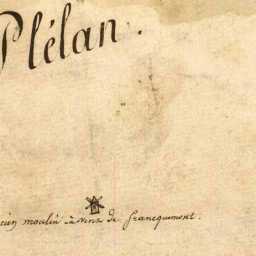 Plélan.
cien moulin à vent de francquemont.